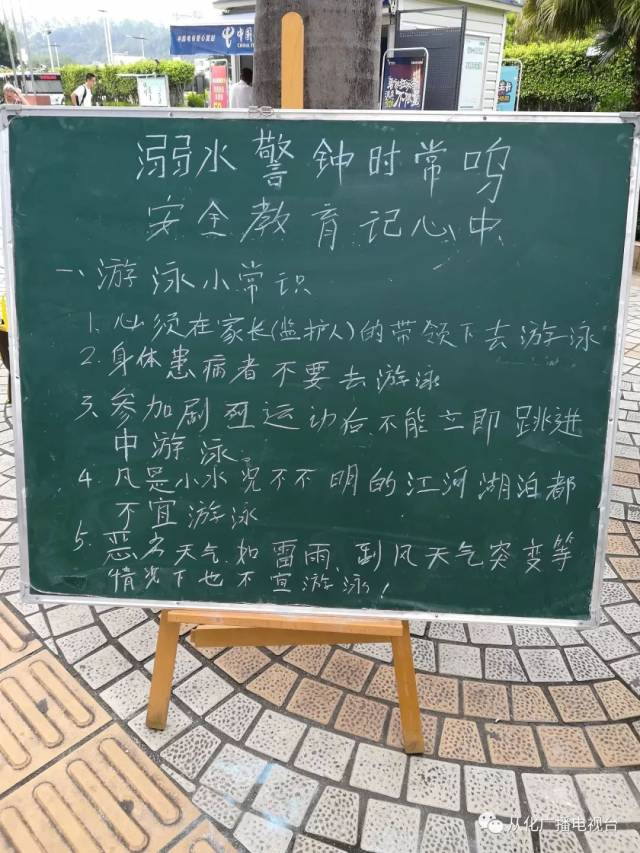 中国电信爱心驿站
中国
溺水警钟时常鸣
安全教育记心中
一、游泳小常识
1. 必须在家长(监护人)的带领下去游泳
2. 身体患病者不要去游泳
3. 参加剧烈运动后不能立即跳进
中游泳
4. 凡是小水况不不明的江河湖泊都
不宜游泳
5. 恶劣天气如雷雨、刮风天气突变等
情况下也不宜游泳!
从化广播电视台